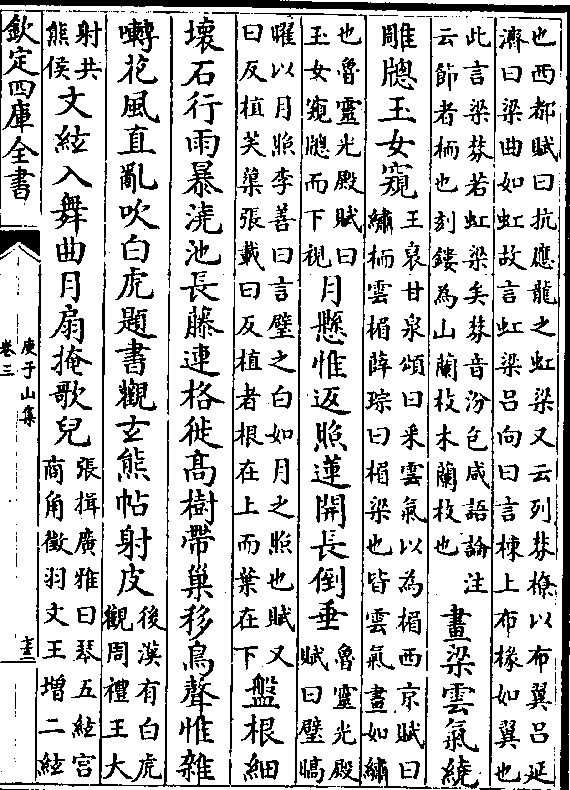 也西都賦曰抗應龍之虹梁又云列棼橑以布翼呂延
濟曰梁曲如虹故言虹梁呂向曰言棟上布椽如翼也
此言梁棼若虹梁矣棼音汾包咸語論注
云節者栭也刻鏤為山蘭枚木蘭枚也
畫梁雲氣繞
雕牕玉女窺
王裒甘泉頌曰采雲氣以為楣西京賦曰
繡栭雲楣薛琮曰楣梁也皆雲氣畫如繡
也魯靈光殿賦曰
玉女窺牕而下視
月懸惟返照蓮開長倒垂
魯靈光殿
賦曰璧皜
曜以月照李善曰言璧之白如月之照也賦又
曰反植芙蕖張載曰反植者根在上而葉在下
盤根細
壞石行雨暴澆池長藤連格徙高樹帶巢移鳥聲惟雜
囀花風直亂吹白虎題書觀玄熊帖射皮
後漢有白虎
觀周禮王大
射共
熊侯
文絃入舞曲月扇掩歌兒
張揖廣雅曰琴五絃宮
商角徵羽文王增二絃
欽定四庫全書
庾子山集
卷三